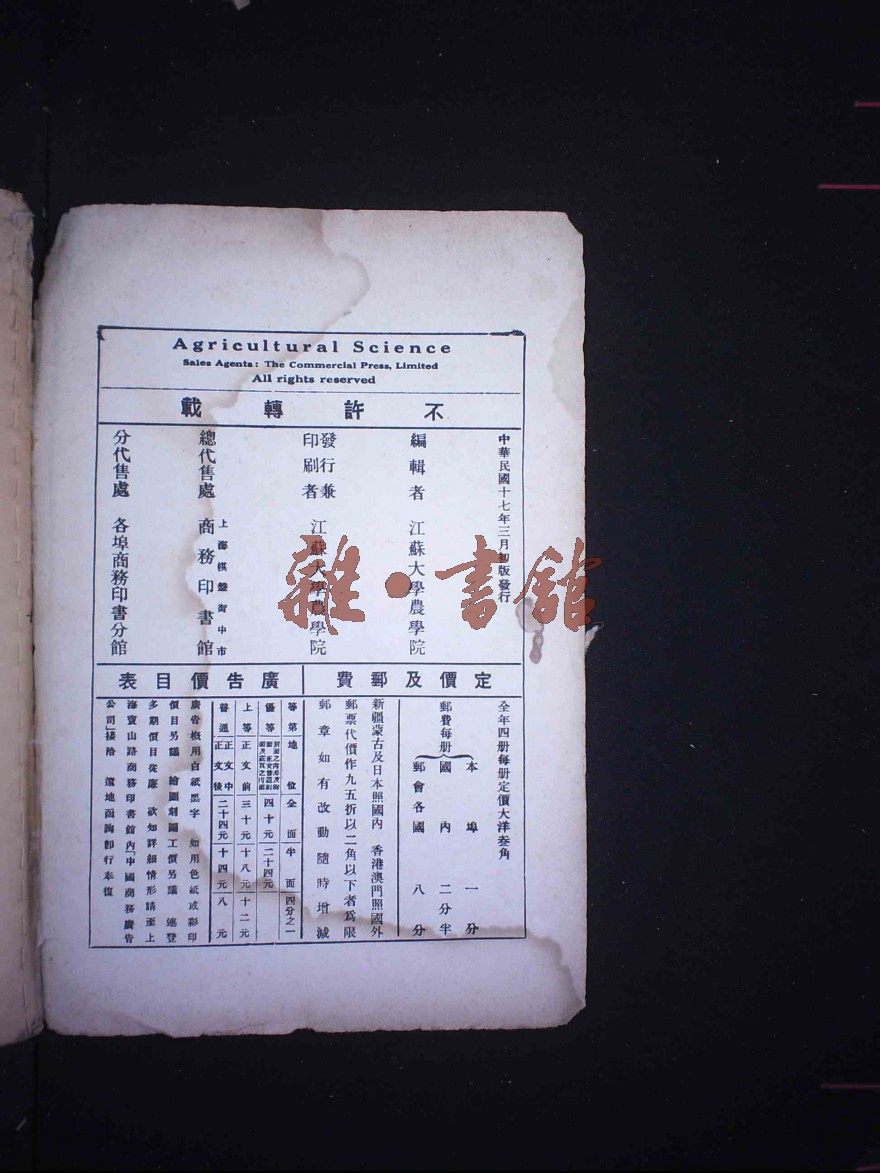 Agricultural Science
Sales Agents: The Commercial Press, Limited
All rights reserved
不許轉載
中華民國十七年三月初版發行
編輯者 江蘇大學農學院
發行兼
印刷者 江蘇大學農學院
總代售處 上海棋盤街中市
商務印書館
分代售處 各埠商務印書分館
定價及郵費
全年四册每册定價大洋叁角
郵費每册
本埠 一分
國內 二分半
郵會各國 八分
新疆蒙古及日本照國內 香港澳門照國外
郵票代價作九五折以二角以下者爲限
郵章如有改動隨時增減
廣告價目表
等第 地位 全面 半面 四分之一
優等 四十元 二十四元
上等 正文前 三十元 十八元 十二元
普通 正文中 正文後 二十四元 十四元 八元
廣告概用白紙黑字 如用色紙或彩印
價目另議 繪圖刻圖工價另議 連登
多期價目從廉 欲知詳細情形請至上
海寶山路商務印書館內「中國商務廣告
公司」接洽 遠地函詢卽行奉復
雜·書館